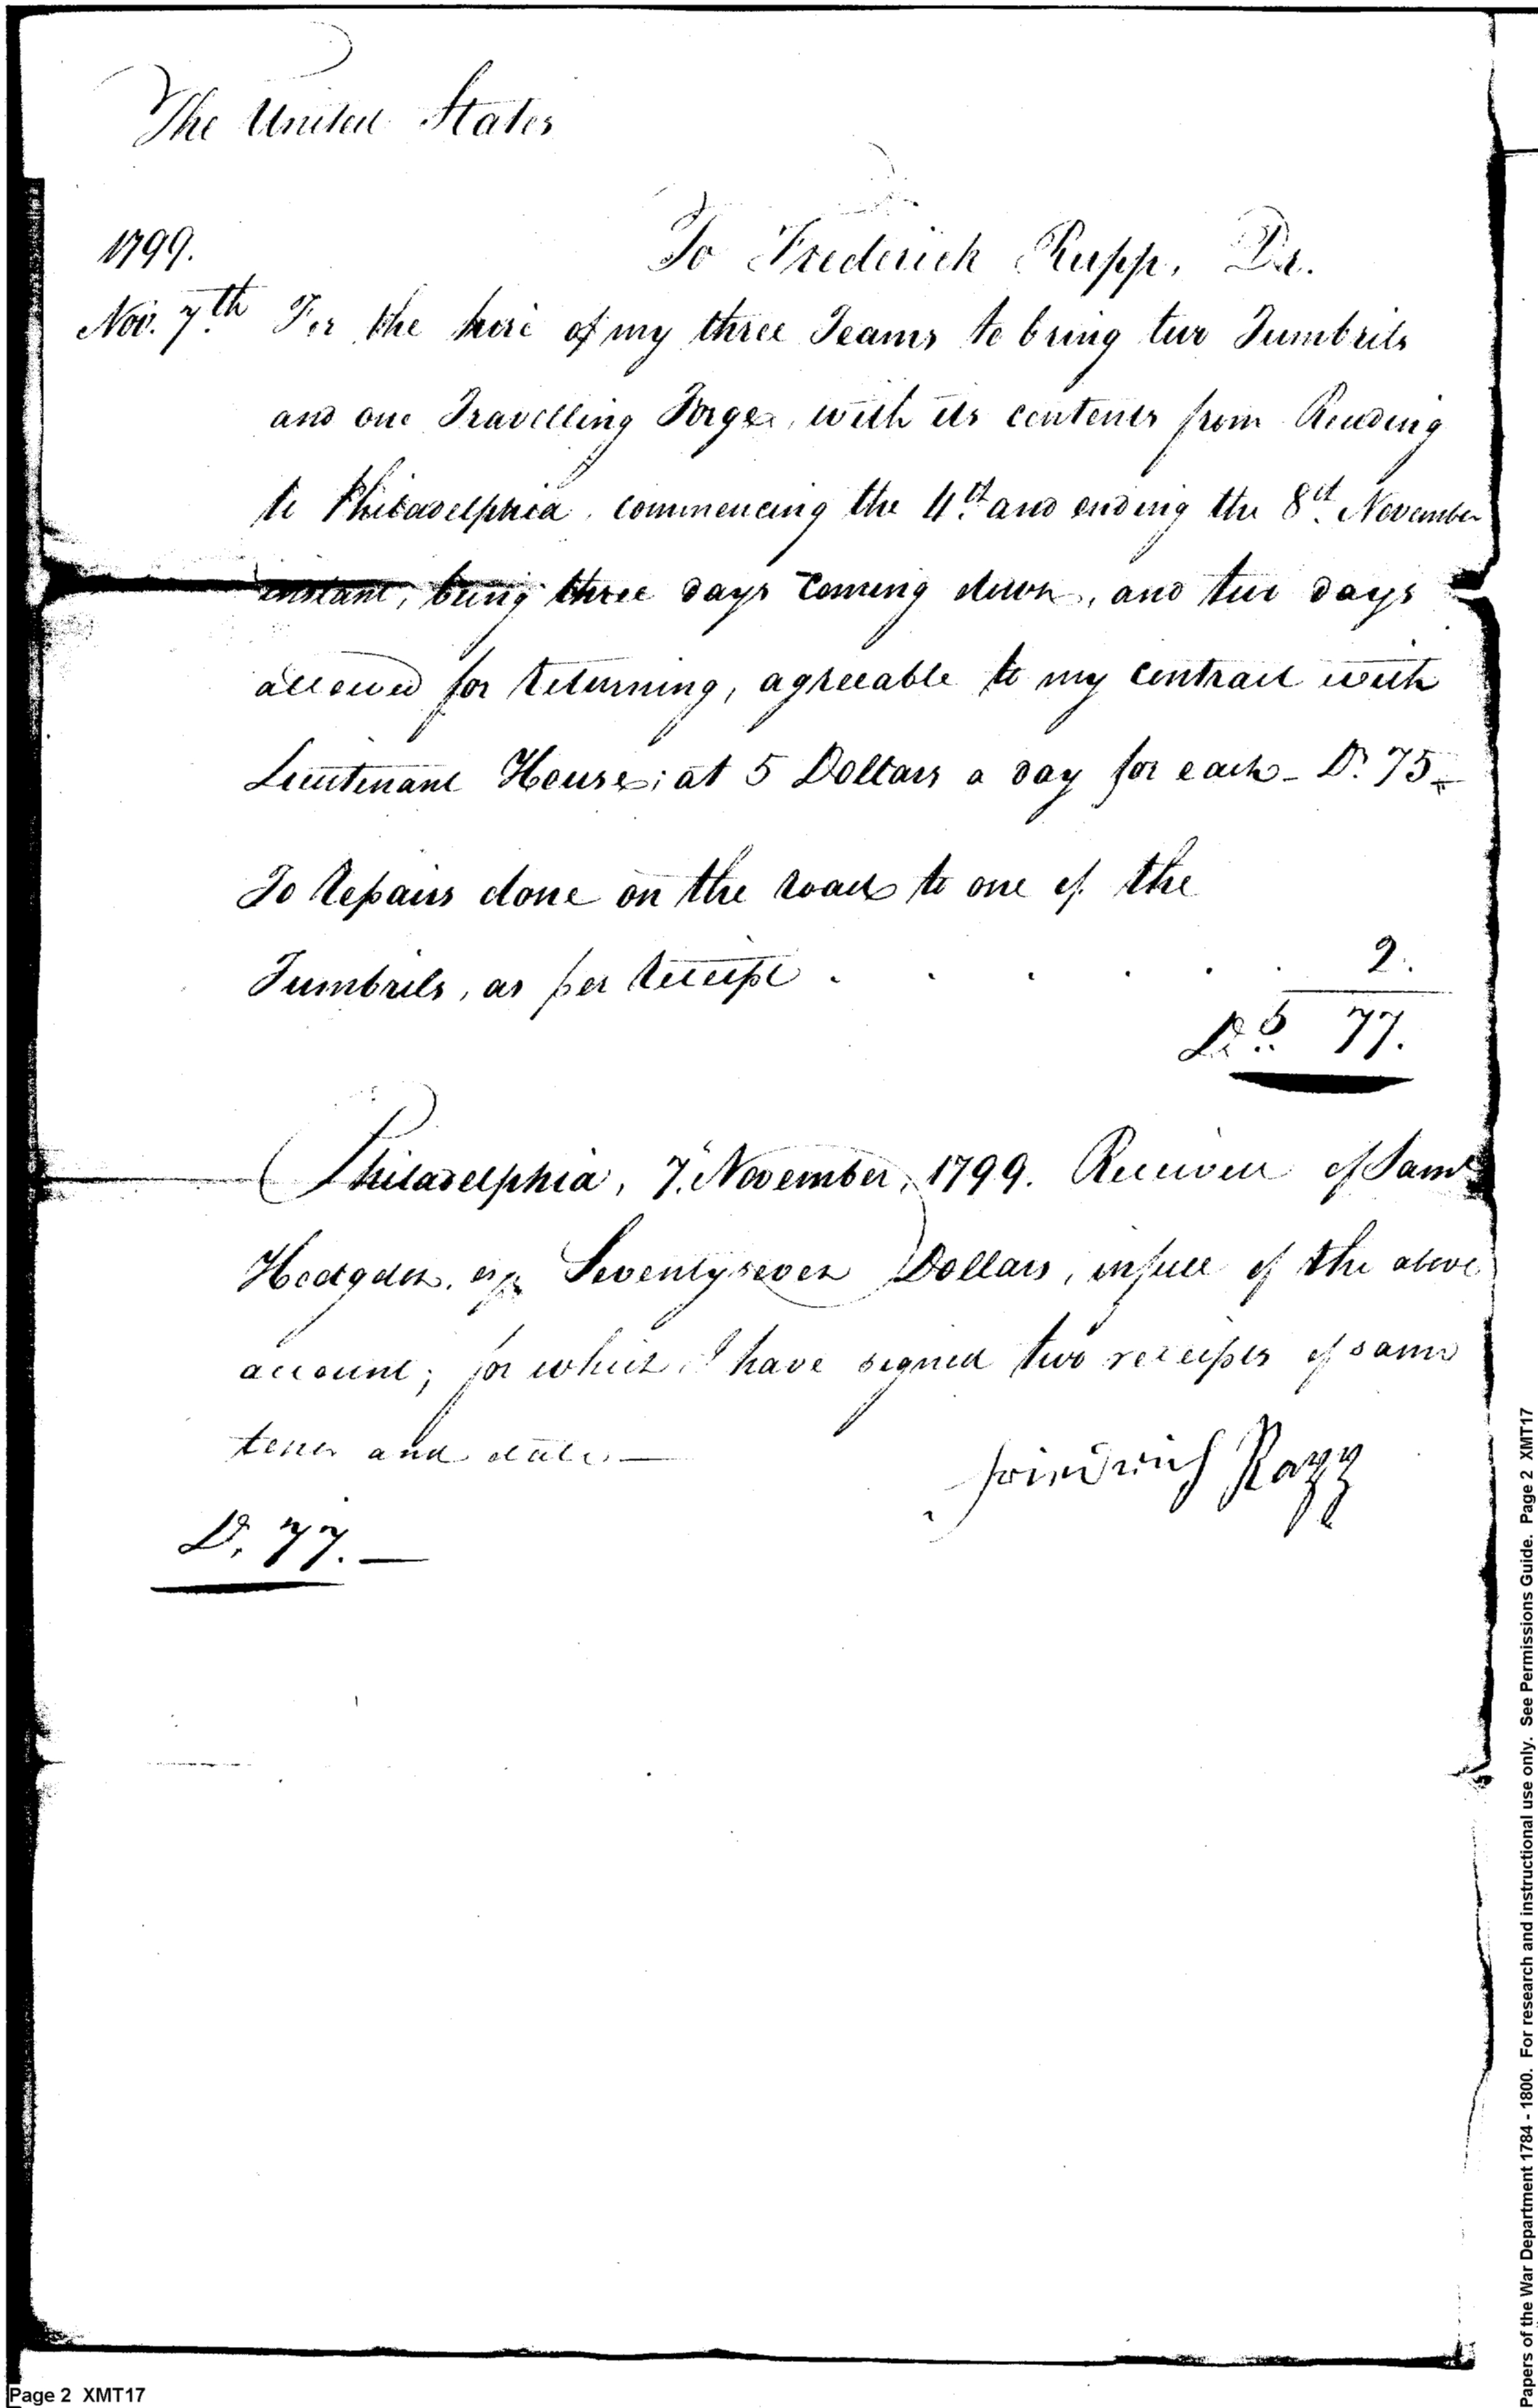 The United States
1799.
To Frederick Rupp, Dr.
Nov. 7th For the hire of my three Teams to bring two Tumbrils
and one Travelling Forge, with its contents from Reading
to Philadelphia, commencing the 4th and ending the 8th November
instant, being three days coming down, and two days
allowed for returning, agreeable to my contract with
Lieutenant House; at 5 Dollars a day for each - Ds. 75
To repairs done on the road to one of the
Tumbrils, as per receipt . . . . . . 2.
Ds. 77.
Philadelphia, 7. November, 1799. Received of Saml
Hodgdon, esq. Seventyseven Dollars, in full of the above
account; for which I have signed two receipts of same
tenor and date. —
Friedrich Rapp
D. 77. —
Page 2 XMT17
Papers of the War Department 1784 - 1800. For research and instructional use only. See Permissions Guide. Page 2 XMT17